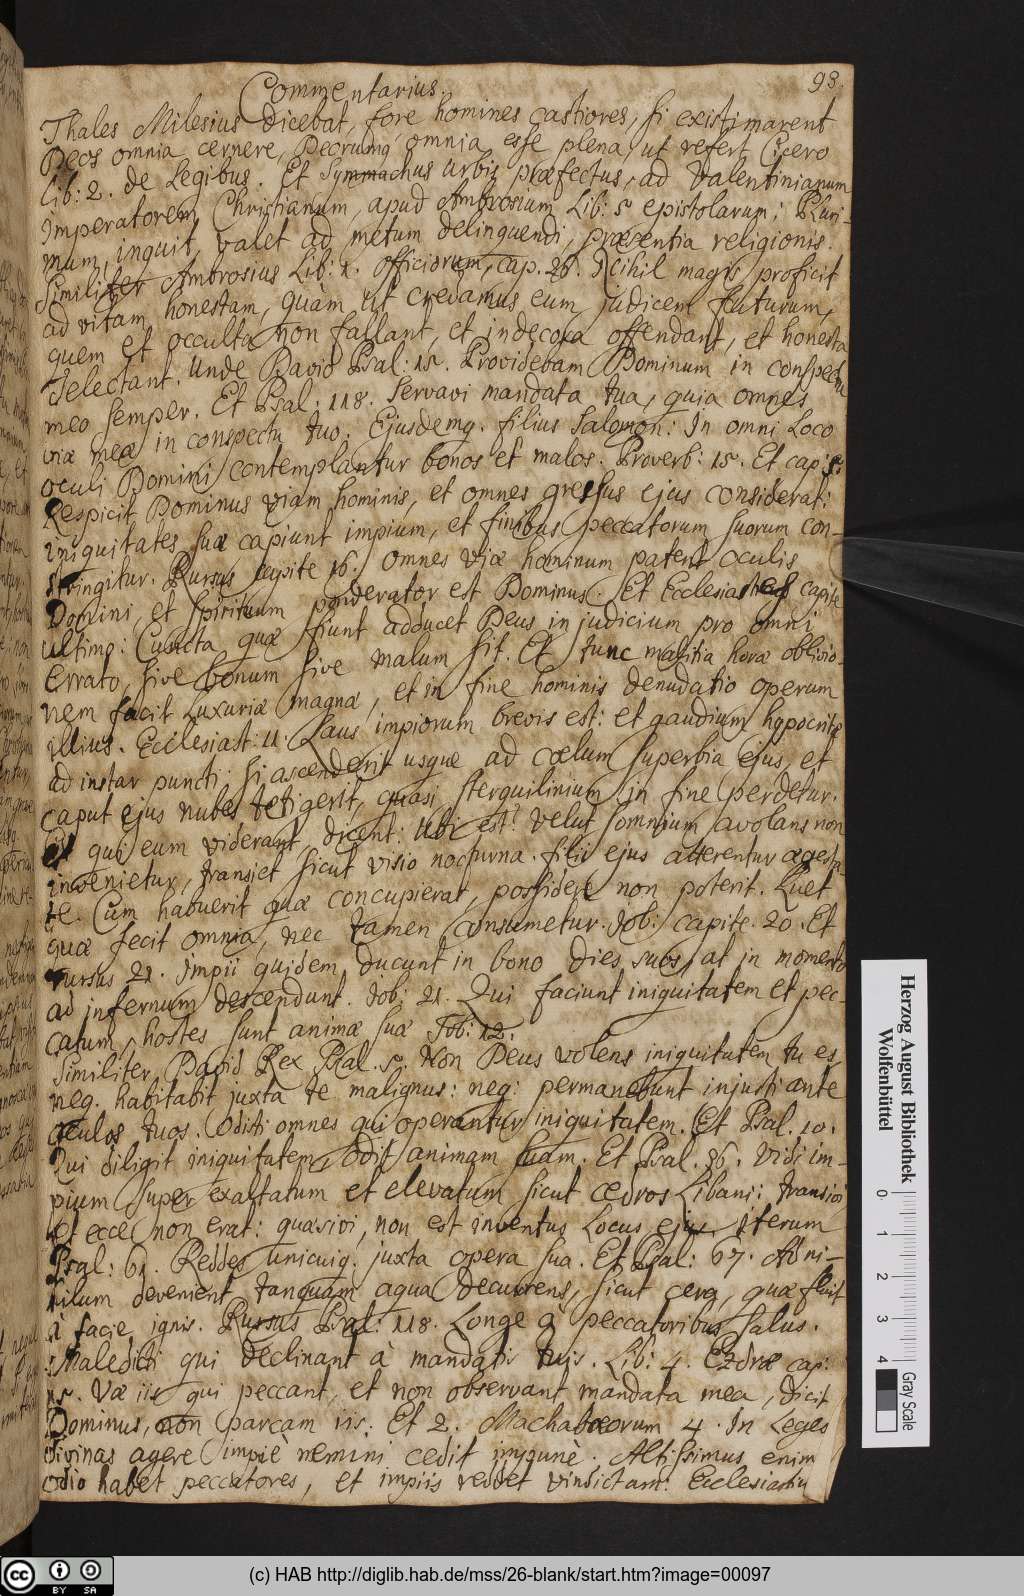 93.
Commentarius.
Thales Milesius dicebat, fore homines castiores, si existimarent
Deos omnia cernere, Deorumq́ omnia esse plena, ut refert Cicero
lib: 2. de Legibus. Et Symmachus urbis præfectus, ad Valentinianum
Imperatorem Christianum, apud Ambrosium Lib: 5 epistolarum: Pluri-
mum, inquit, valet ad metum delinquendi, præsentia religionis.
Similiter Ambrosius Lib: 1. officiorum, cap. 26. Nihil magis proficit
ad vitam honestam, quàm ut credamus eum judicem futurum,
quem et occulta non fallant, et indecora offendant, et honesta
delectant. Unde David Psal: 15. Providebam Dominum in conspectu
meo semper. Et Psal. 118. Servavi mandata tua, quia omnes
viæ meæ in conspectu tuo. Ejusdemq. filius Salomon: In omni Loco
oculi Domini contemplantur bonos et malos. Proverb: 15. Et cap: 5.
Respicit Dominus viam hominis, et omnes gressus ejus considerat:
iniquitates suæ capiunt impium, et finibus peccatorum suorum con-
stringitur. Rursus capite 16. omnes viæ hominum patent oculis
Domini et spirituum ponderator est Dominus. Et Ecclesiastes capite
ultimo: Cuncta quæ fiunt adducet Deus in judicium pro omni
errato, sive bonum sive malum sit. Et tunc malitia horæ oblivio-
nem facit Luxuriæ magnæ, et in fine hominis denudatio operum
illius. Ecclesiast: 11. Laus impiorum brevis est: et gaudium hypocritæ
ad instar puncti: si ascenderit usque ad cœlum superbia ejus, et
caput ejus nubes tetigerit, quasi sterquilinium in fine perdetur.
et qui eum viderant, dicent: Ubi est? velut somnium avolans non
invenietur, transiet sicut visio nocturna. filii ejus atterentur egesta-
te. Cum habuerit quæ concupierat, possidere non poterit. Luet
quæ fecit omnia, nec tamen consumetur. Job: capite. 20. Et
rursus 21. Impii quidem ducunt in bono dies suos, at in momento
ad infernum descendunt. Job: 21. Qui faciunt iniquitatem et pec-
catum, hostes sunt animæ suæ Tob: 12.
Similiter, David Rex Psal. 5. Non Deus volens iniquitatem tu es,
neq. habitabit juxta te malignus: neq: permanebunt injusti ante
oculos tuos. Odisti omnes qui operantur iniquitatem. Et Psal. 10.
Qui diligit iniquitatem, odit animam suam. Et Psal. 36. Vidi im-
pium super exaltatum et elevatum sicut cedros Libani: transivi
et ecce non erat: quæsivi, non est inventus Locus ejus. Iterum
Psal: 61. Reddes unicuiq. juxta opera sua. Et Psal: 67. Ad ni-
hilum devenient, tanquam aqua decurrens, sicut cera, quæ fluit
à facie ignis. Rursus Psal: 118. Longe à peccatoribus salus.
Maledicti qui declinant à mandatis tuis. Lib: 4. Ezdræ cap:
15. Væ iis qui peccant, et non observant mandata mea, dicit
Dominus, non parcam iis. Et 2. Machabæorum 4. In Leges
divinas agere impiè nemini cedit impunè. Altissimus enim
odio habet peccatores, et impiis reddet vindictam: Ecclesiastici
Herzog August Bibliothek
Wolfenbüttel
0 1 2 3 4
Gray Scale
CC BY SA
(c) HAB http://diglib.hab.de/mss/26-blank/start.htm?image=00097